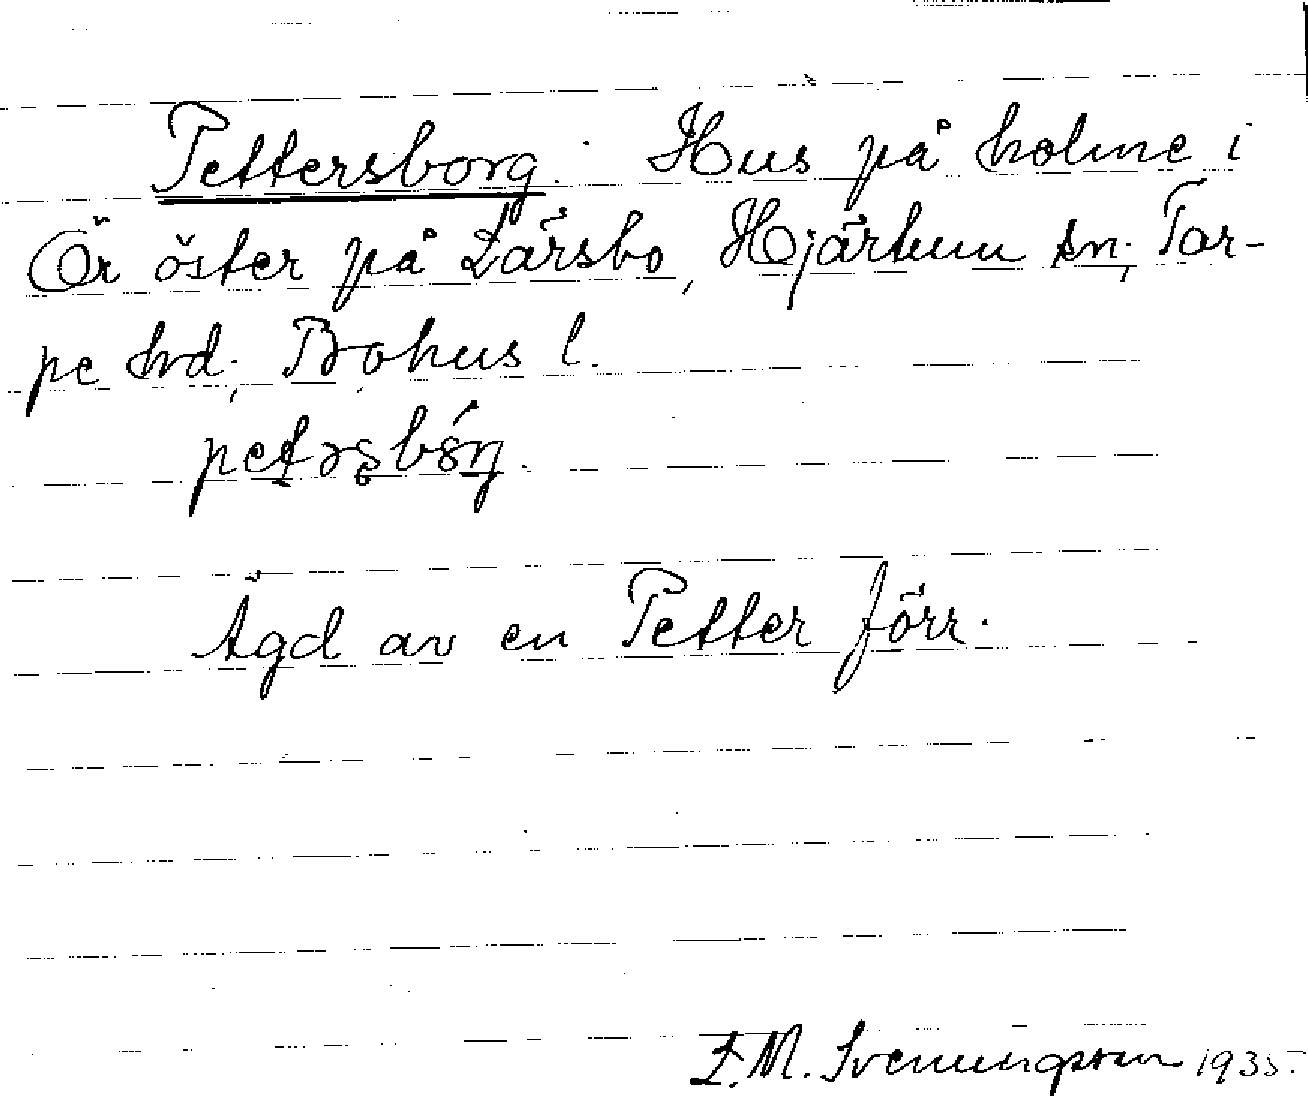 Pettersborg. Hus på holme i
Ör öster på Lärsbo, Hjärtum sn; Tor-
pe hrd; Bohus l.
Ägd av en Petter förr.
E.M. Svenungsson 1935.